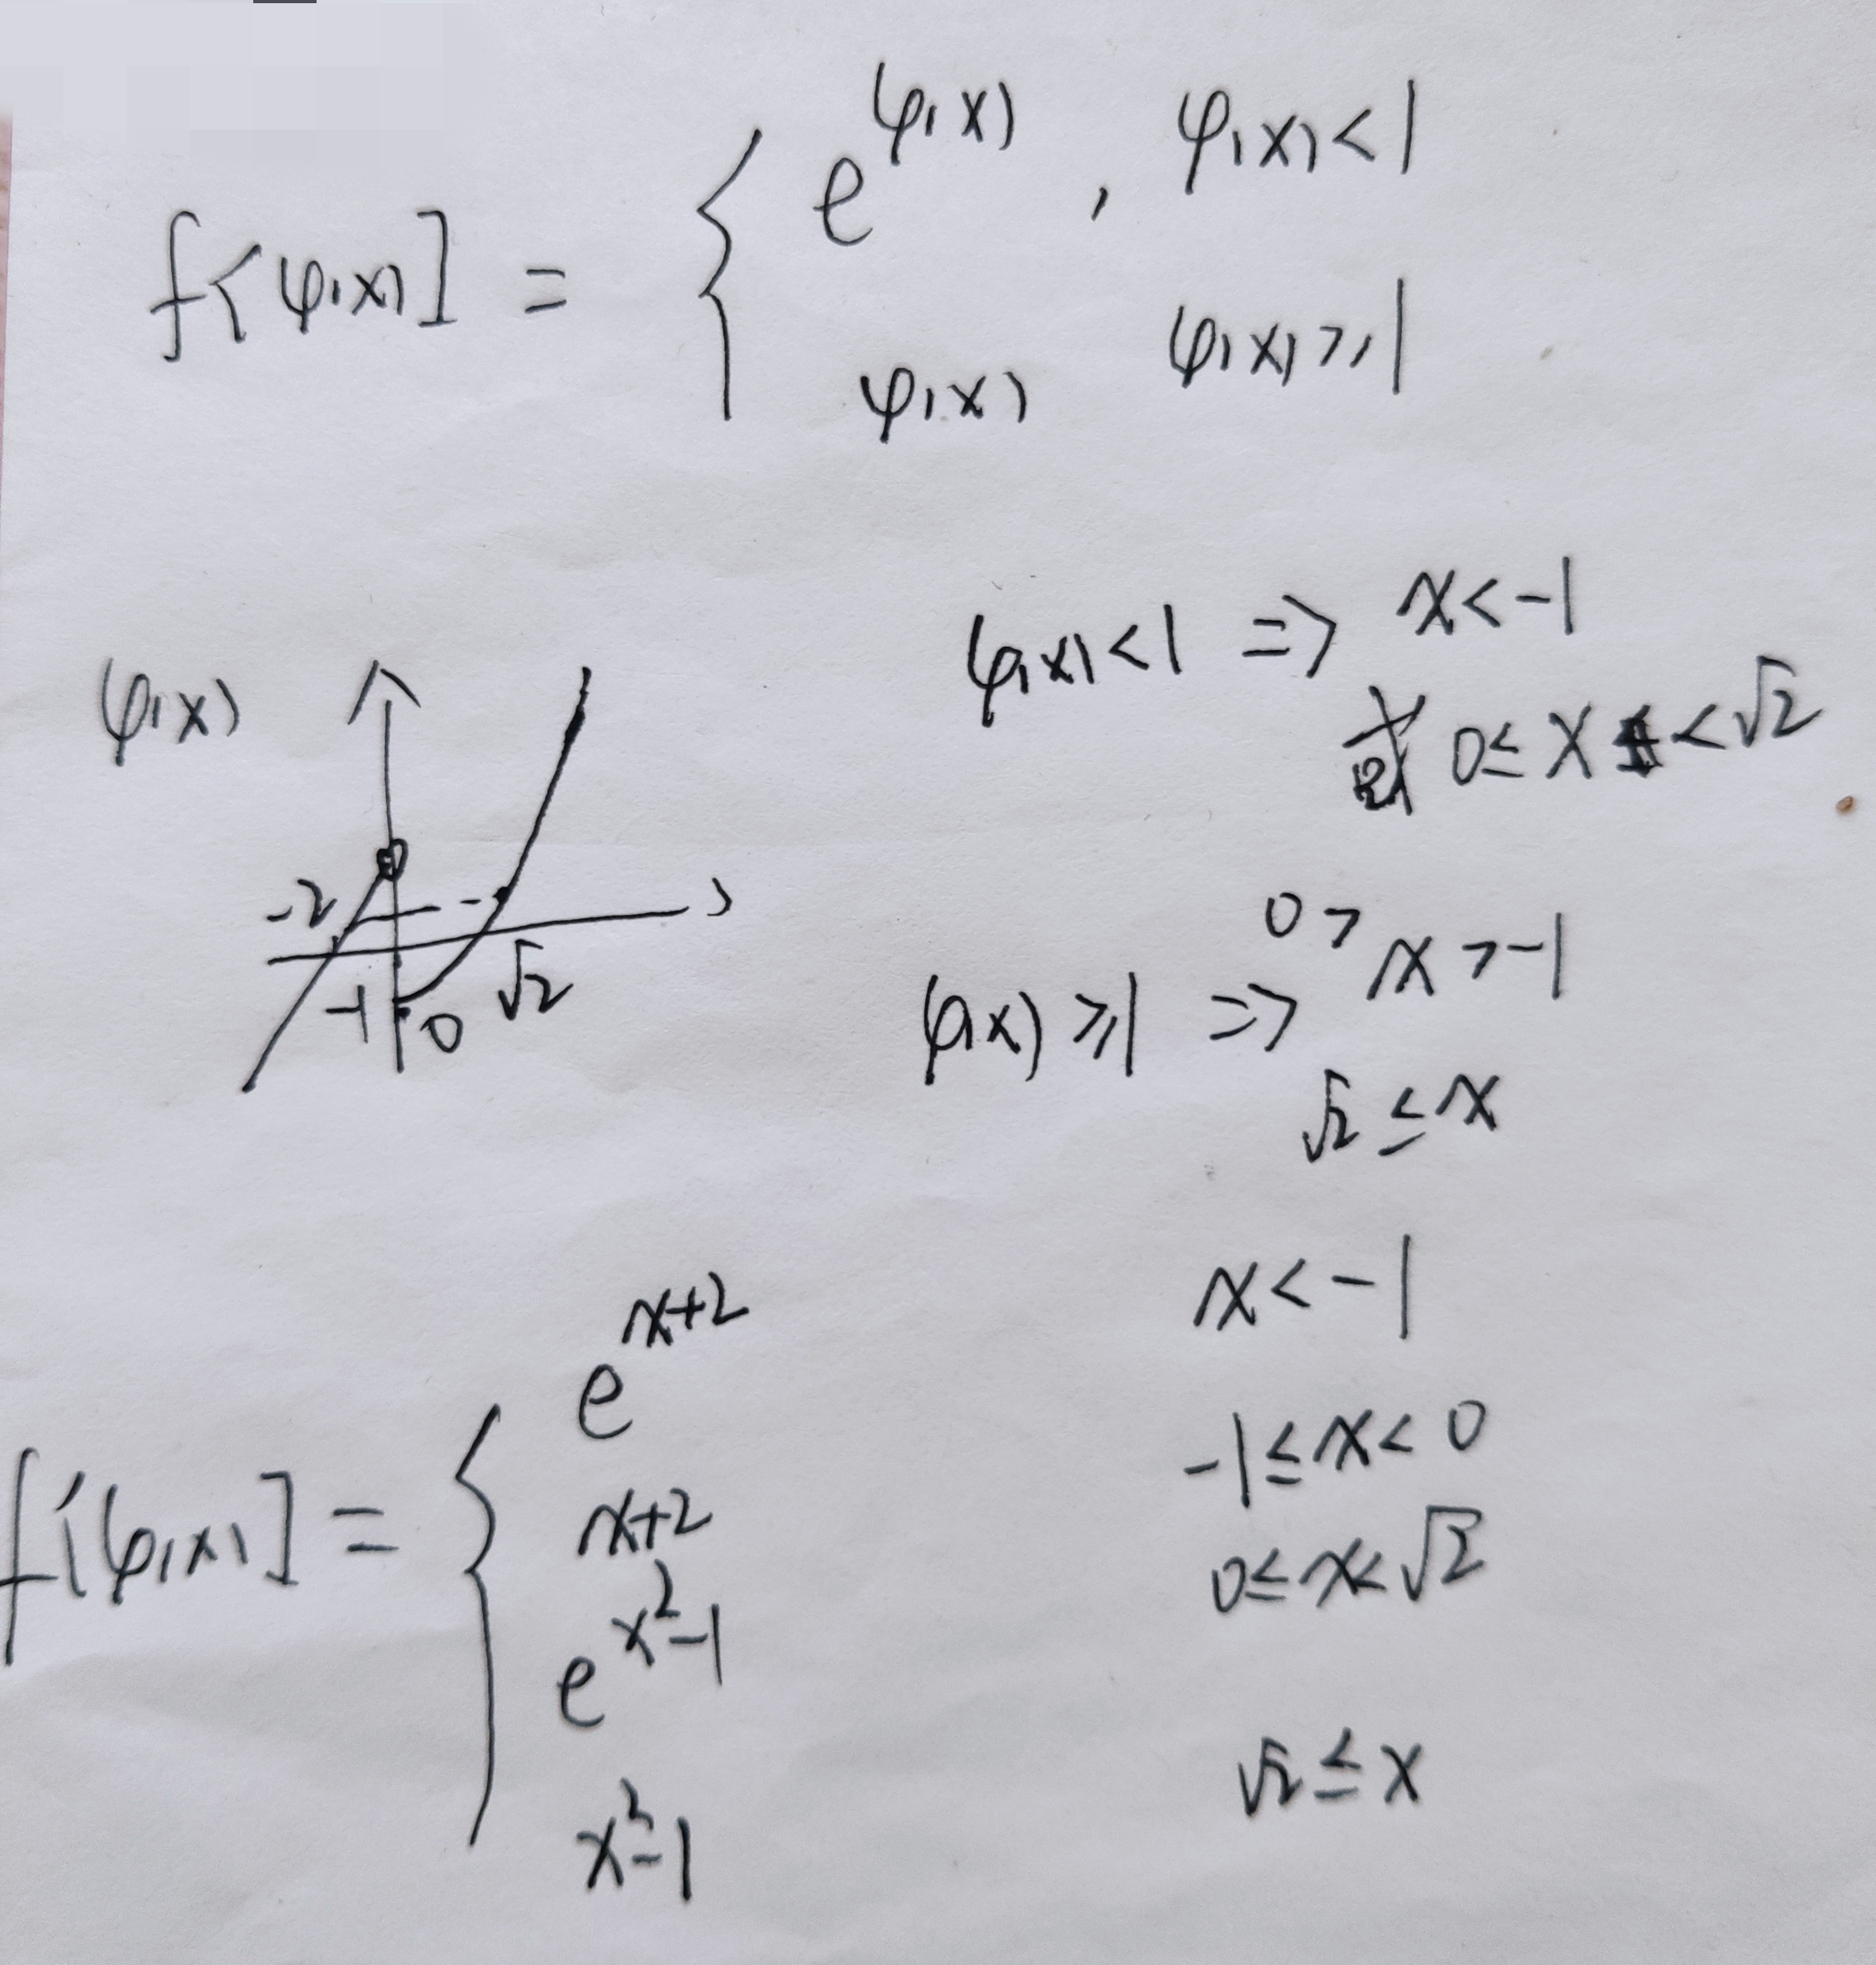 f[φ(x)] = { e^{φ(x)} , φ(x)<1
φ(x) φ(x)≥1
φ(x)<1 => x<-1
或 0≤x<√2
φ(x)
-2
-1 0 √2
φ(x)≥1 => 0>x>-1
√2≤x
f[φ(x)] = { e^{x+2} x<-1
x+2 -1≤x<0
e^{x²-1} 0≤x<√2
x²-1 √2≤x